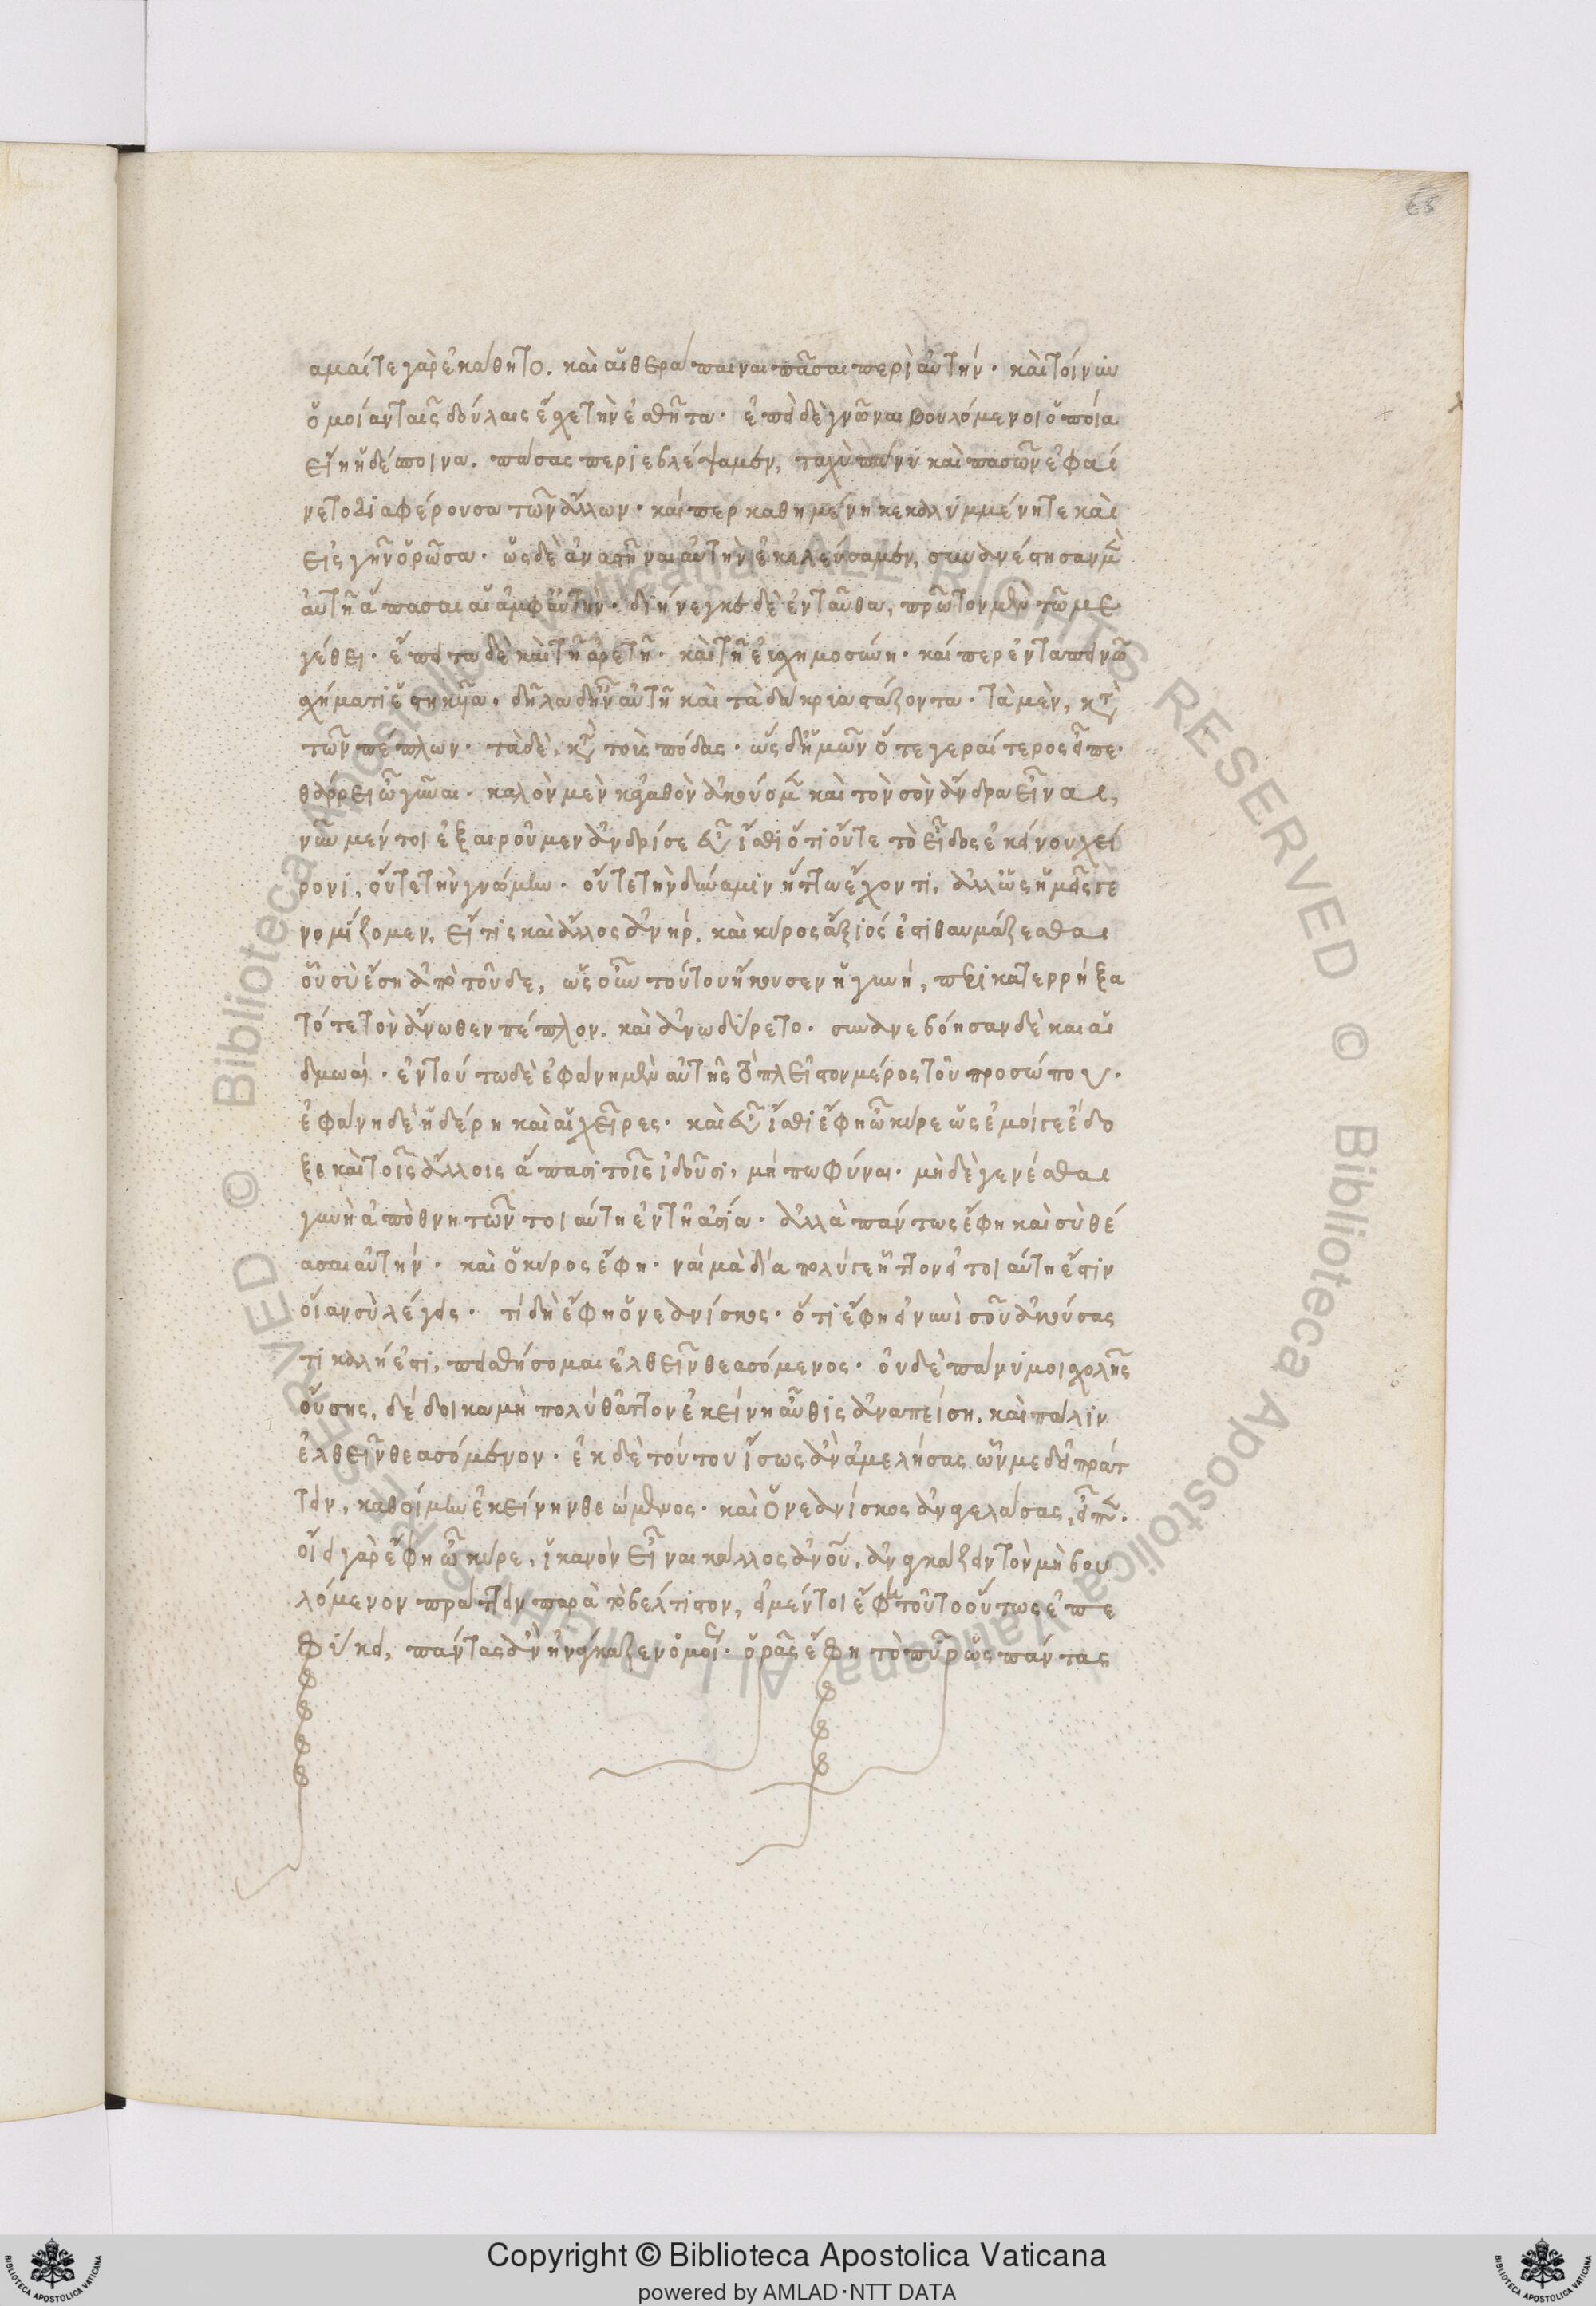 65
αμαί τε γὰρ ἐκάθητο. καὶ αἱ θεράπαιναι πᾶσαι περὶ αὐτήν· καὶ τοίνυν
ὁμοίαν ταῖς δούλαις εἶχε τὴν ἐσθῆτα· ἐπεὶ δὲ γνῶναι βουλόμενοι ὁποία
εἴη ἡ δέσποινα. πάσας περιεβλέψαμεν, ταχὺ πάνυ καὶ πασῶν ἐφαί
νετο διαφέρουσα τῶν ἄλλων· καίπερ καθημένη κεκαλυμμένη τε καὶ
εἰς γῆν ὁρῶσα· ὡς δὲ ἀναστῆναι αὐτὴν ἐκελεύσαμεν, συνανέστησαν μὲν
αὐτῇ ἅπασαι αἱ ἀμφ' αὐτήν· διήνεγκε δὲ ἐνταῦθα, πρῶτον μὲν τῷ με
γέθει· ἔπειτα δὲ καὶ τῇ ἀρετῇ· καὶ τῇ εὐσχημοσύνῃ· καίπερ ἐν ταπεινῷ
σχήματι ἑστηκυῖα· δῆλα δ' ἦν αὐτῇ καὶ τὰ δάκρυα στάζοντα· τὰ μὲν, κατὰ
τῶν πέπλων· τὰ δὲ, κατὰ τοὺς πόδας· ὡς δ' ἡμῶν ὅ τε γεραίτερος εἶπε·
θάρρει ὦ γύναι· καλὸν μὲν κἀγαθὸν ἀκούομεν καὶ τὸν σὸν ἄνδρα εἶναι,
νῦν μέντοι ἐξαιροῦμεν ἀνδρί σε εὖ ἴσθι ὅτι οὔτε τὸ εἶδος ἐκείνου χεί
ρονι, οὔτε τὴν γνώμην· οὔτε τὴν δύναμιν ἥττω ἔχοντι, ἀλλ' ὡς ἡμεῖς γε
νομίζομεν, εἴ τις καὶ ἄλλος ἀνήρ. καὶ κύρος ἄξιός ἐστι θαυμάζεσθαι
οὗ σὺ ἔσῃ ἀπὸ τοῦδε, ὡς οὖν τούτου ἤκουσεν ἡ γυνή, περικατερρήξα
τό τε τὸν ἄνωθεν πέπλον. καὶ ἀνωδύρετο· συνανεβόησαν δὲ και αἱ
δμωαί· ἐν τούτω δὲ ἐφάνη μὲν αὐτῆς τὸ πλεῖστον μέρος τοῦ προσώπου·
ἐφάνη δὲ ἡ δέρη καὶ αἱ χεῖρες· καὶ εὖ ἴσθι ἔφη ὦ κύρε ὡς ἐμοί τε ἔδο
ξε καὶ τοῖς ἄλλοις ἅπασι τοῖς ἰδοῦσι, μήπω φύναι· μὴδὲ γενέσθαι
γυνὴ ἀπὸ θνητῶν τοιαύτη ἐν τῇ ἀσία· ἀλλὰ πάντως ἔφη καὶ σὺ θέ
ασαι αὐτήν· καὶ ὁ κύρος ἔφη· ναί μὰ δία πολύ γε ἧττον εἰ τοιαύτη ἐστὶν
οἵαν σὺ λέγεις· τί δὴ ἔφη ὁ νεανίσκος· ὅτι ἔφη εἰ νυνὶ σοῦ ἀκούσας
ὅτι καλή ἐστι, πεισθήσομαι ἐλθεῖν θεασόμενος· οὐδὲ πάνυ μοι σχολῆς
οὔσης, δέδοικα μὴ πολύ θᾶττον ἐκείνη αὖθις ἀναπείσῃ. καὶ πάλιν
ἐλθεῖν θεασόμενον· ἐκ δὲ τούτου ἴσως ἂν ἀμελήσας ὧν με δεῖ πράτ
τειν, καθοίμην ἐκείνην θεώμενος· καὶ ὁ νεανίσκος ἀναγελάσας, εἶπεν·
οἴει γὰρ ἔφη ὦ κύρε, ἱκανὸν εἶναι κάλλος ἀνοῦ, ἀναγκάζειν τὸν μὴ βου
λόμενον πράττειν παρὰ τὸ βέλτιστον, εἰ μέντοι ἔφη τοῦτο οὕτως ἐπε
φύκει, πάντας ἂν ἠνάγκαζεν ὁμοίως· ὁρᾷς ἔφη τὸ πῦρ ὡς πάντας
Copyright © Biblioteca Apostolica Vaticana
powered by AMLAD·NTT DATA